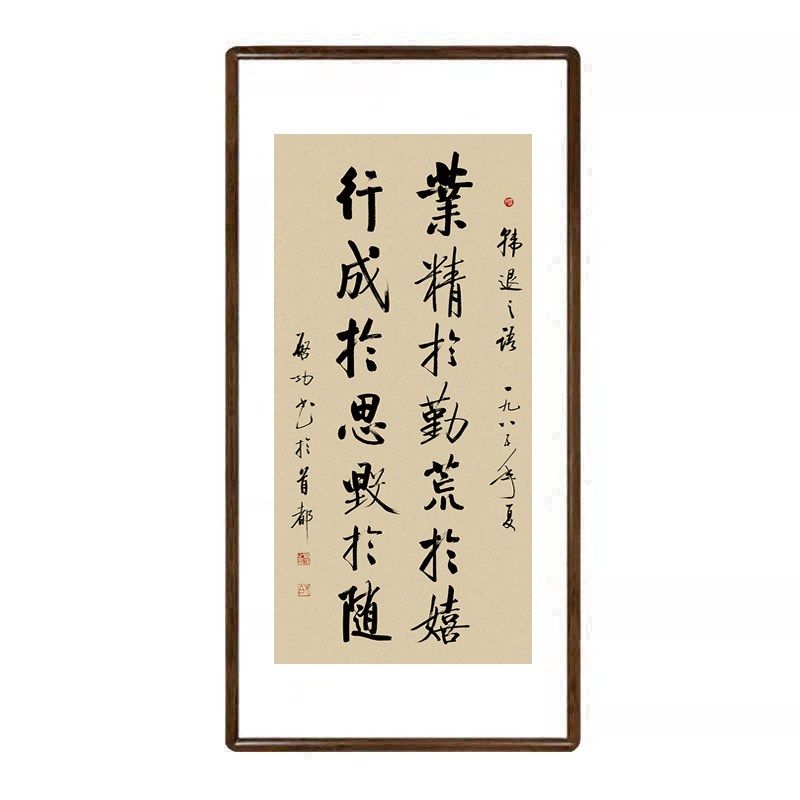 韩退之語 一九八三年夏
業精於勤荒於嬉
行成於思毀於随
啓功书於首都